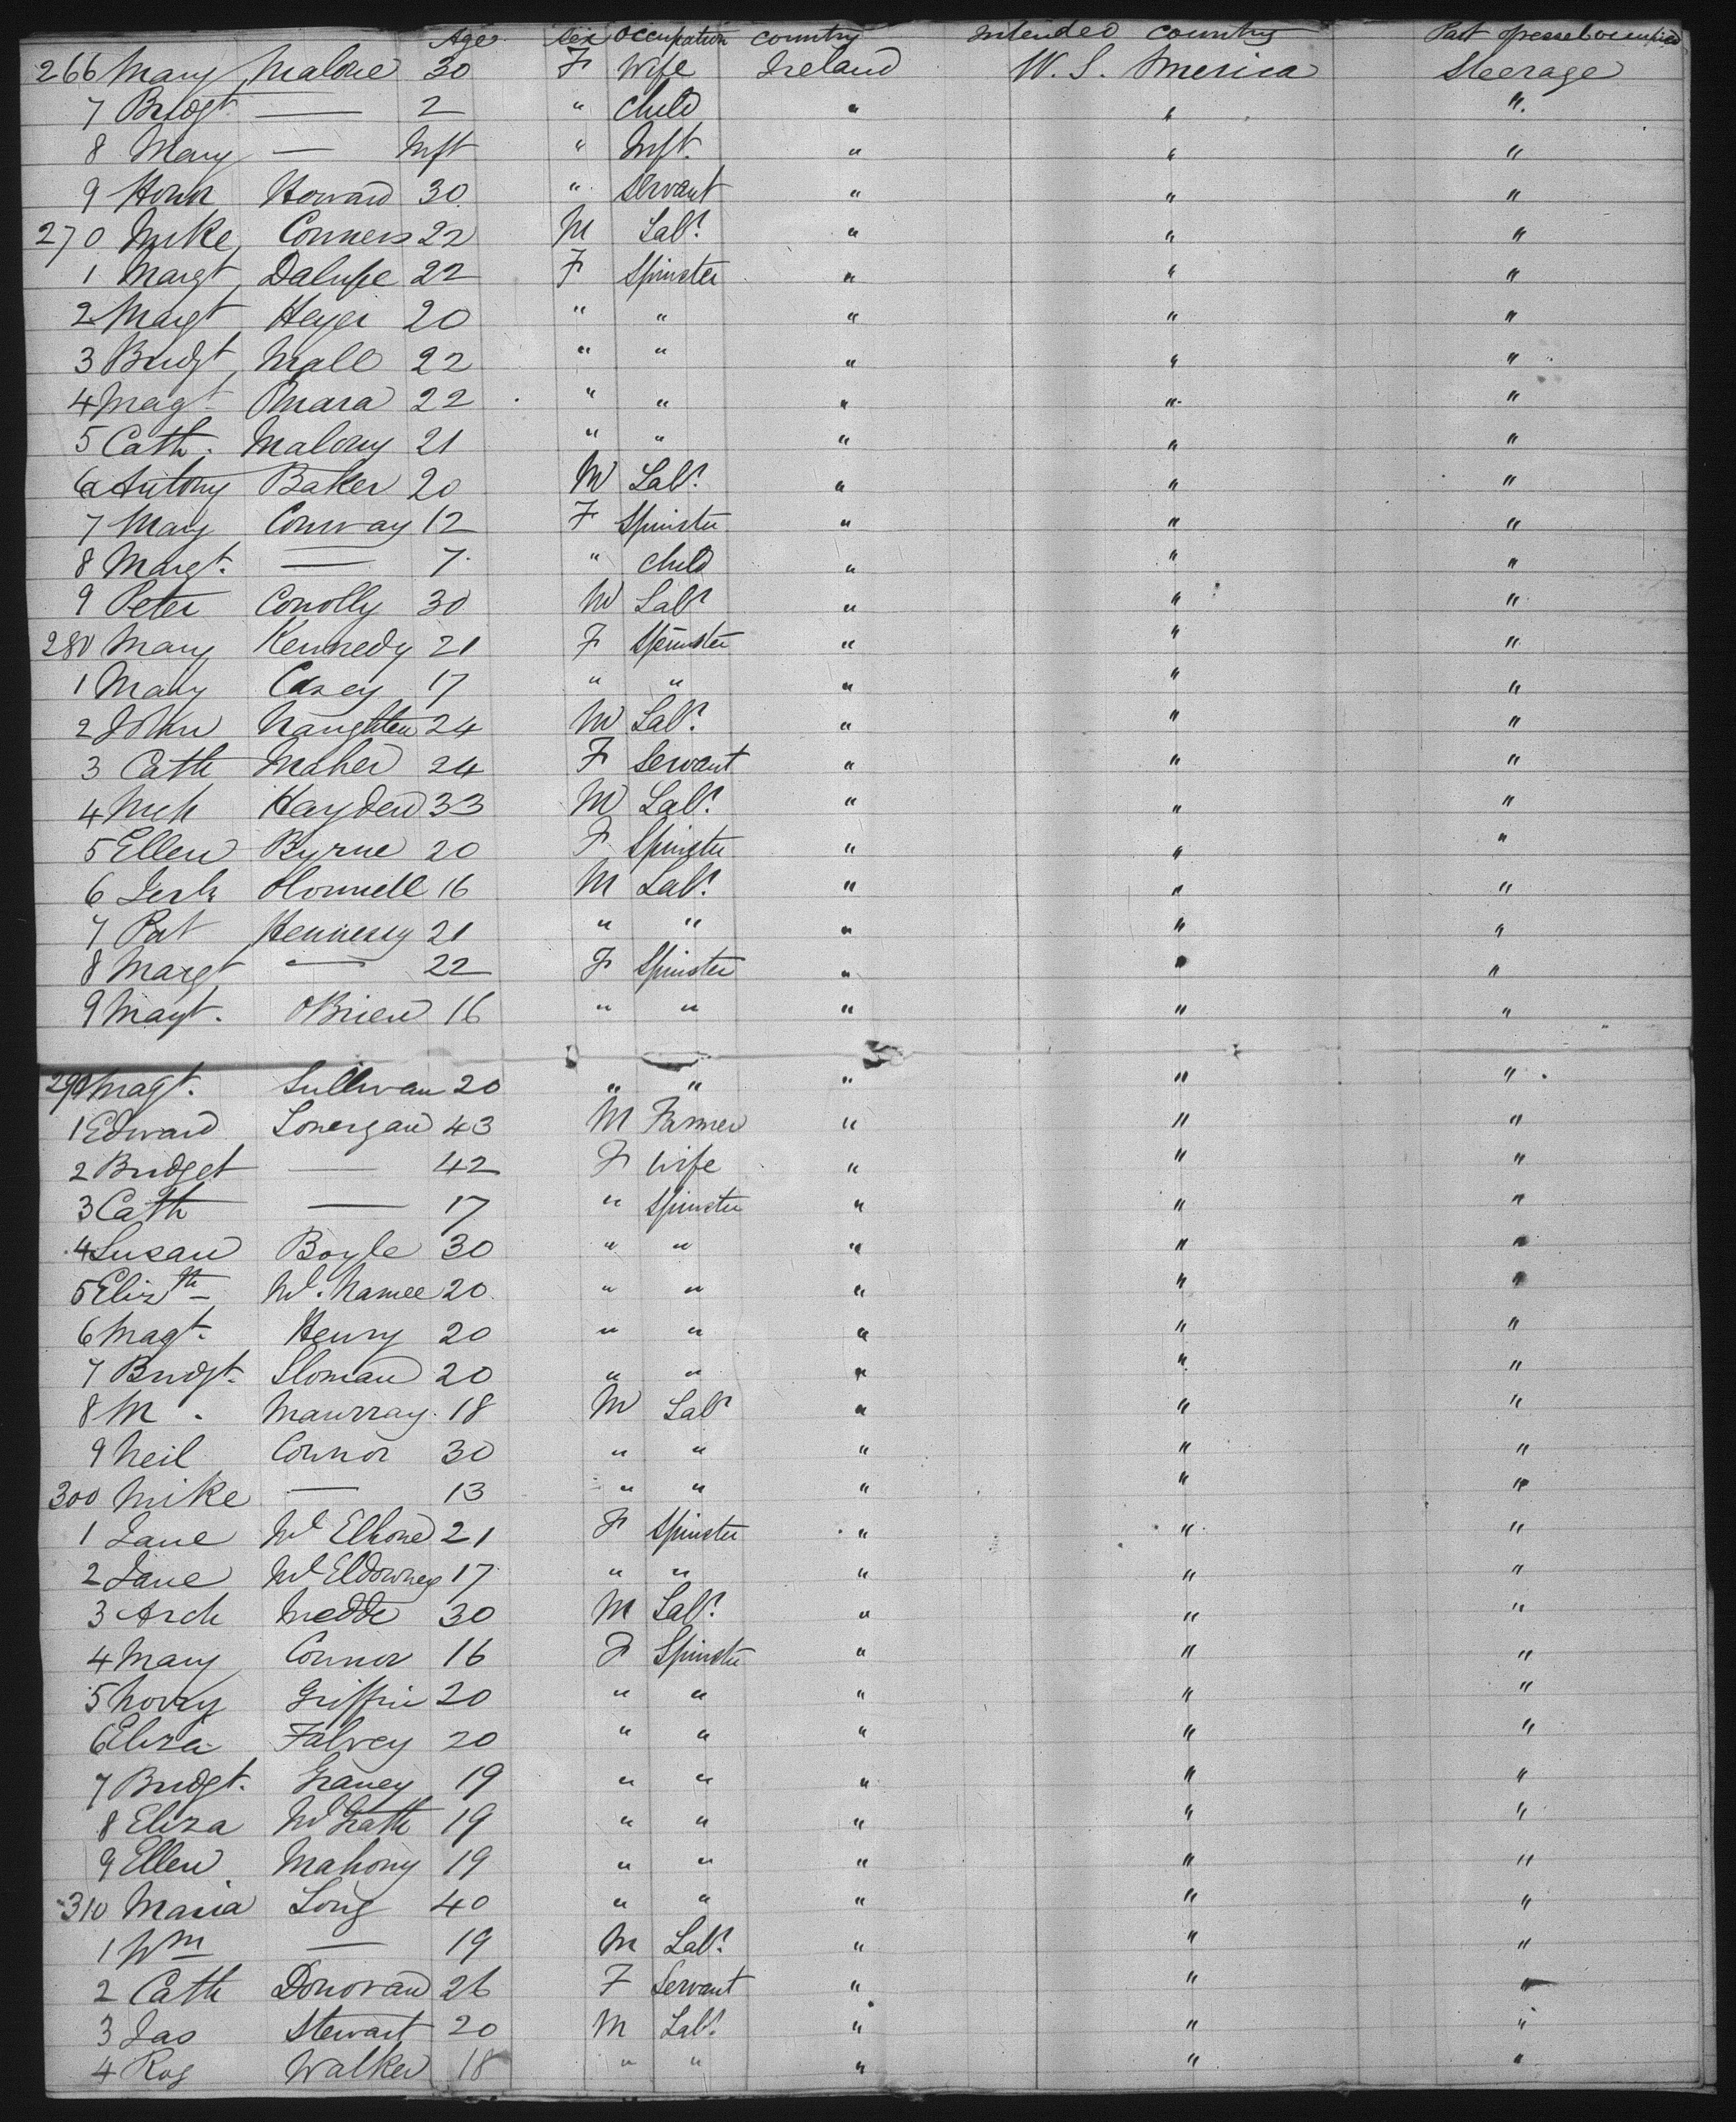 Age Sex Occupation Country Intended Country Part of vessel occupied
266 Mary Malone 30 F Wife Ireland U. S. America Steerage
7 Bridgt — 2 " Child " " "
8 Mary — Inft " Inft. " " "
9 Howard 30 " Servant " " "
270 Mike Conners 22 M Labr. " " "
1 Margt 22 F Spinster " " "
2 Margt 20 " " " " "
3 Bridgt 22 " " " " "
4 Magt Omara 22 " " " " "
5 Cath. Malony 21 " " " " "
6 Antony Baker 20 M Labr. " " "
7 Mary Conway 12 F Spinster " " "
8 Margt. — 7 " Child " " "
9 Peter Conolly 30 M Labr " " "
280 Mary Kennedy 21 F Spinster " " "
1 Mary Casey 17 " " " " "
2 John Naughten 24 M Labr. " " "
3 Cath Maher 24 F Servant " " "
4 Mich Hayden 33 M Labr. " " "
5 Ellen Byrne 20 F Spinster " " "
6 OConnell 16 M Labr. " " "
7 Pat Hennessy 21 " " " " "
8 Margt — 22 F Spinster " " "
9 Magt. OBrien 16 " " " " "
290 Magt. Sullivan 20 " " " " "
1 Edward Lonergan 43 M Farmer " " "
2 Bridget — 42 F Wife " " "
3 Cath — 17 " Spinster " " "
4 Susan Boyle 30 " " " " "
5 Elizth McNamee 20 " " " " "
6 Magt. Henry 20 " " " " "
7 Bridgt. Sloman 20 " " " " "
8 M. Mawrray 18 M Labr " " "
9 Neil Connor 30 " " " " "
300 Mike — 13 " " " " "
1 Jane McElhone 21 F Spinster " " "
2 Jane McEldowney 17 " " " " "
3 Arch 30 M Labr. " " "
4 Mary Connor 16 F Spinster " " "
5 Norry Griffin 20 " " " " "
6 Eliza Falvey 20 " " " " "
7 Bridgt. Graney 19 " " " " "
8 Eliza McGrath 19 " " " " "
9 Ellen Mahony 19 " " " " "
310 Maria Long 40 " " " " "
1 Wm — 19 M Labr. " " "
2 Cath Donovan 26 F Servant " " "
3 Jas Stewart 20 M Labr. " " "
4 Walker 18 " " " " "